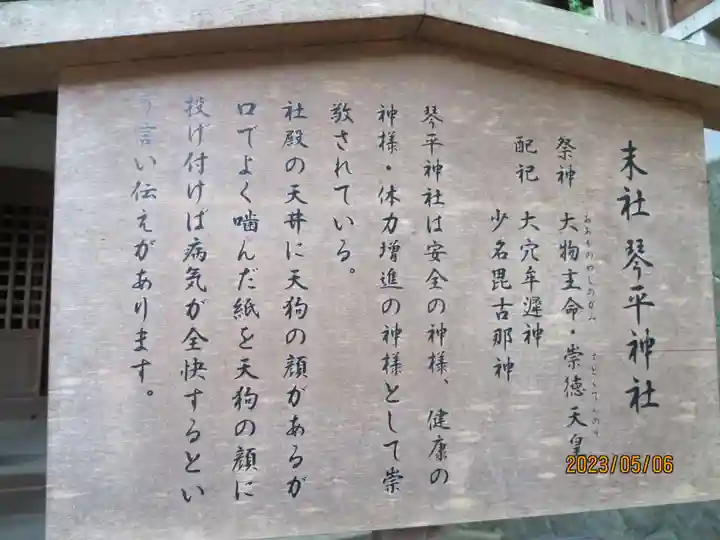 末社 琴平神社
祭神 大物主命・崇徳天皇
おおものぬしのかみ
すとくてんのう
配祀 大穴牟遅神
少名毘古那神
琴平神社は安全の神様、健康の
神様・体力増進の神様として崇
敬されている。
社殿の天井に天狗の顔があるが
口でよく噛んだ紙を天狗の顔に
投げ付けば病気が全快するとい
う言い伝えがあります。
2023/05/06